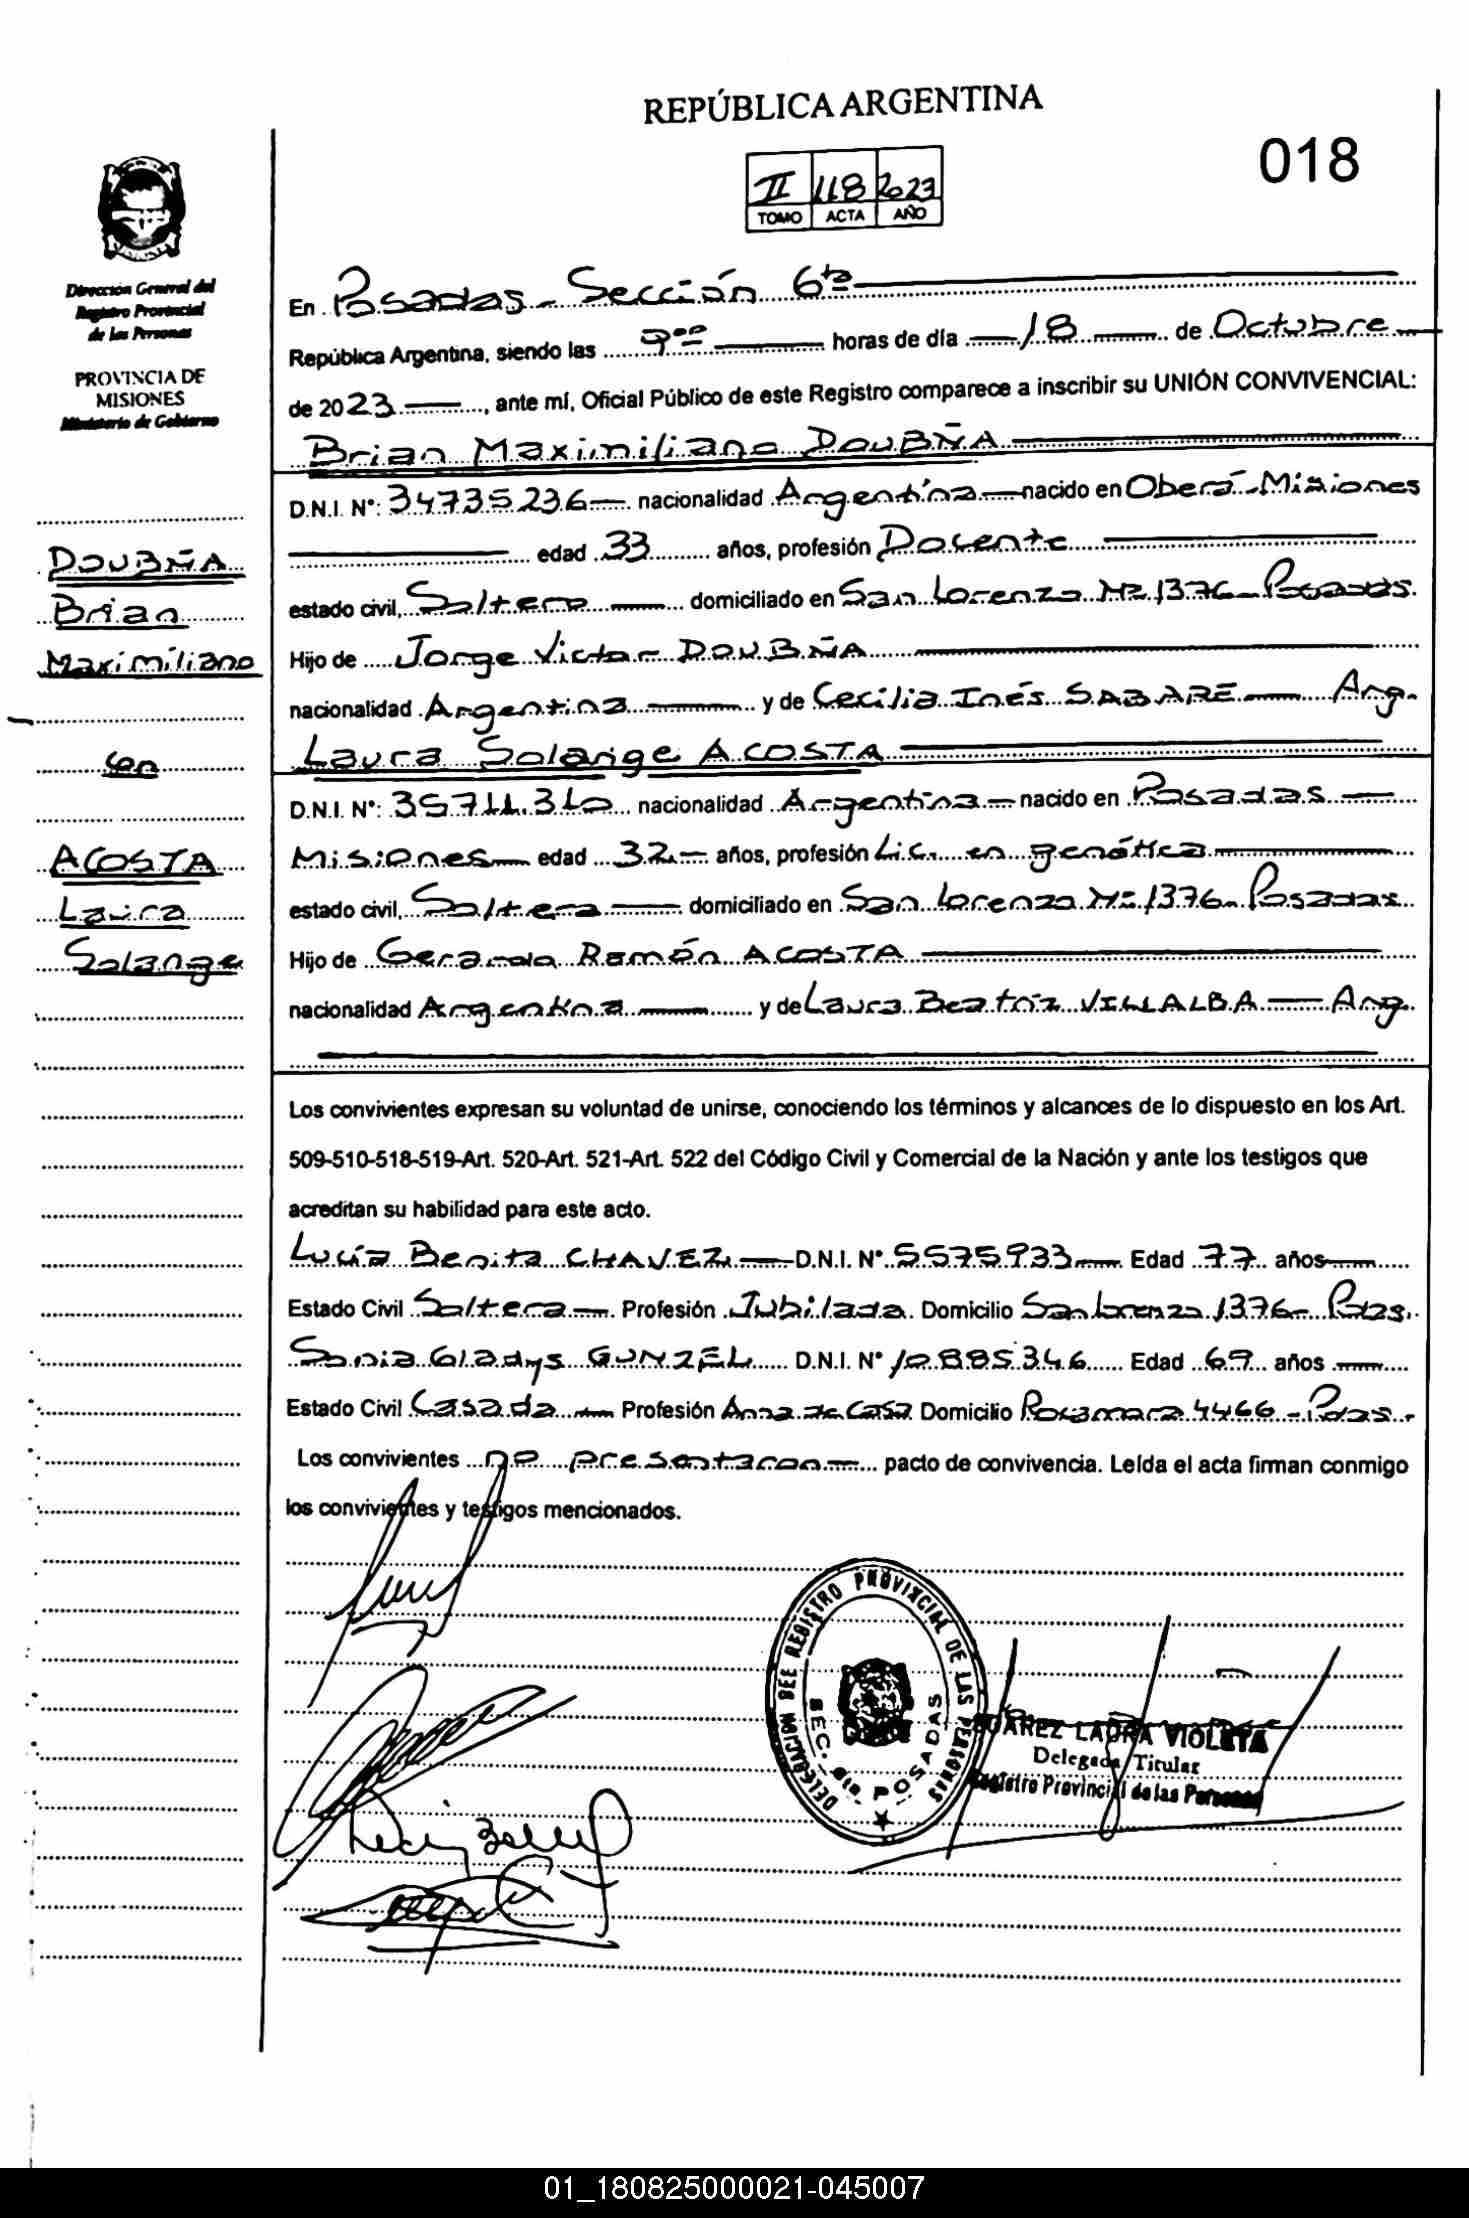 REPÚBLICA ARGENTINA
018
II 118 2023
TOMO ACTA AÑO
Dirección General del
Registro Provincial
de las Personas
PROVINCIA DE
MISIONES
Ministerio de Gobierno
En Posadas - Sección 6ta
República Argentina, siendo las 9 horas de día 18 de Octubre
de 2023, ante mí, Oficial Público de este Registro comparece a inscribir su UNIÓN CONVIVENCIAL:
Brian Maximiliano DOUBÑA
D.N.I. N°: 34735236 nacionalidad Argentina nacido en Oberá - Misiones
edad 33 años, profesión Docente
estado civil, Soltero domiciliado en San Lorenzo Mz 1376 - Posadas.
Hijo de Jorge Victor DOUBÑA
nacionalidad Argentina y de Cecilia Inés SABARE Arg.
Laura Solange ACOSTA
D.N.I. N°: 35711310 nacionalidad Argentina nacido en Posadas
Misiones edad 32 años, profesión Lic. en genética
estado civil, Soltera domiciliado en San Lorenzo Nº 1376 - Posadas
Hijo de Gerardo Ramón ACOSTA
nacionalidad Argentina y de Laura Beatriz VILLALBA Arg.
DOUBÑA
Brian
Maximiliano
con
ACOSTA
Laura
Solange
Los convivientes expresan su voluntad de unirse, conociendo los términos y alcances de lo dispuesto en los Art.
509-510-518-519-Art. 520-Art. 521-Art. 522 del Código Civil y Comercial de la Nación y ante los testigos que
acreditan su habilidad para este acto.
Lucía Benita CHAVEZ D.N.I. N° 5575933 Edad 77 años
Estado Civil Soltera Profesión Jubilada Domicilio San Lorenzo 1376 - Pdas.
Sonia Gladys GUNZEL D.N.I. N° 10885346 Edad 69 años
Estado Civil Casada Profesión Ama de Casa Domicilio Rocamora 4466 - Pdas.
Los convivientes no presentaron pacto de convivencia. Leída el acta firman conmigo
los convivientes y testigos mencionados.
DELEGACION DEL REGISTRO PROVINCIAL DE LAS PERSONAS
SEC. 6ta POSADAS
SUAREZ LAURA VIOLETA
Delegada Titular
Registro Provincial de las Personas
01_180825000021-045007